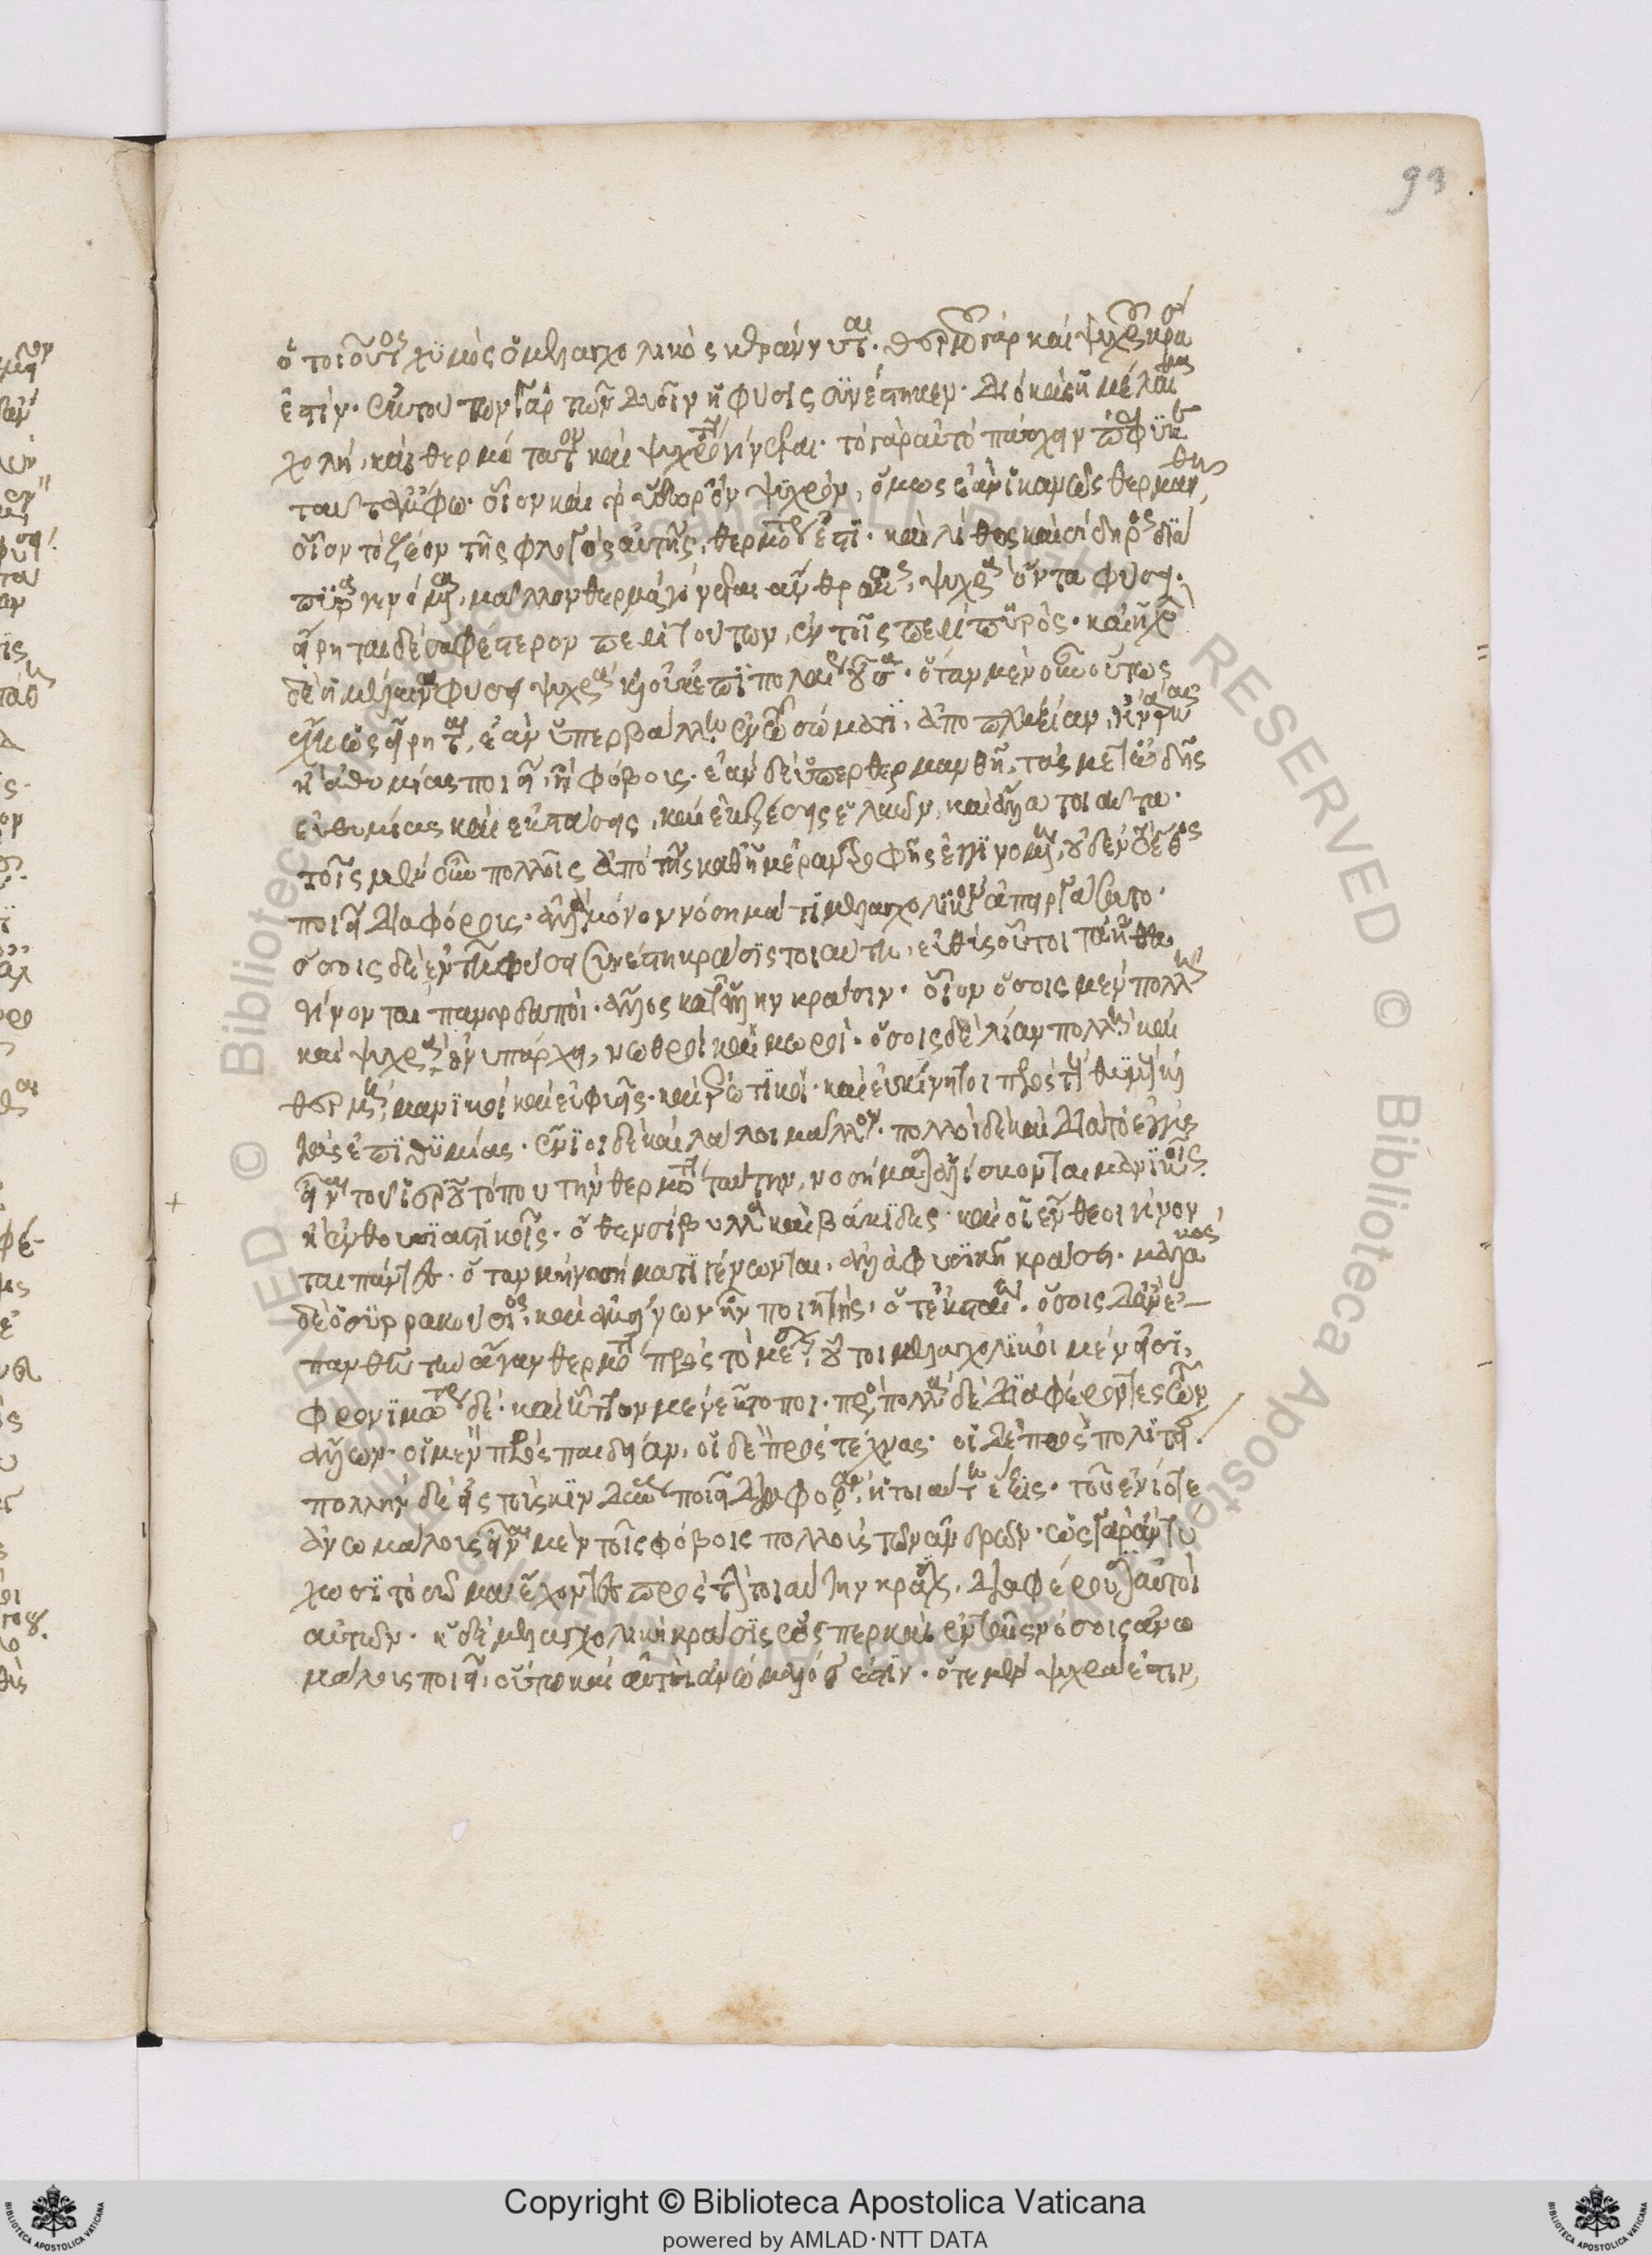 ὁ τοιοῦτος χυμὸς ὁ μελαγχολικὸς κεράννυται. θερμοῦ γὰρ καὶ ψυχροῦ κρᾶσίς
ἐστιν. ἐκ τούτων γὰρ τῶν δυοῖν ἡ φύσις συνέστηκεν. διὸ καὶ ἡ μέλαινα
χολὴ, καὶ θερμότατον καὶ ψυχρότατον γίνεται. τὸ γὰρ αὐτὸ πάσχειν πέφυκε
ταῦτ' ἄμφω. οἷον καὶ τὸ ὕδωρ ὂν ψυχρὸν, ὅμως ἐὰν ἱκανῶς θερμανθῇ,
οἷον τὸ ζέον τῆς φλογὸς αὐτῆς, θερμότερόν ἐστι. καὶ λίθος καὶ σίδηρος διά
πυρα γενόμενα, μᾶλλον θερμὰ γίνεται ἄνθρακος, ψυχρὰ ὄντα φύσει.
εἴρηται δὲ σαφέστερον περὶ τούτων, ἐν τοῖς περὶ πυρός. καὶ ἡ χολὴ
δὲ ἡ μέλαινα φύσει ψυχρὰ καὶ οὐκ ἐπιπολαίως οὖσα. ὅταν μὲν οὖν οὕτως
ἔχῃ ὡς εἴρηται, ἐὰν ὑπερβάλλῃ ἐν τῷ σώματι, ἀποπληξίαν, ἢ νάρκας
ἢ ἀθυμίας ποιεῖ, ἢ φόβοις. ἐὰν δὲ ὑπερθερμανθῇ, τὰς μετ' ᾠδῆς
εὐθυμίας καὶ ἐκστάσεις, καὶ ἐκζέσεις ἑλκῶν, καὶ ἄλλα τοιαῦτα.
τοῖς μὲν οὖν πολλοῖς ἀπὸ τῆς καθ' ἡμέραν τροφῆς ἐγγινομένη, οὐδὲν τὸ ἦθος
ποιεῖ διαφόροις. ἀλλὰ μόνον νόσημά τι μελαγχολικὸν ἀπειργάσατο.
ὅσοις δὲ ἐν τῇ φύσει συνέστη κρᾶσις τοιαύτη, εὐθὺς οὗτοι τὰ ἤθη
γίνονται παντοδαποὶ. ἄλλος κατ' ἄλλην κρᾶσιν. οἷον ὅσοις μὲν πολλὴ
καὶ ψυχρὰ ἐνυπάρχει, νωθροὶ καὶ μωροὶ. ὅσοις δὲ λίαν πολλὴ καὶ
θερμὴ, μανικοὶ καὶ εὐφυεῖς. καὶ ἐρωτικοὶ. καὶ εὐκίνητοι πρὸς τοὺς θυμοὺς καὶ
τὰς ἐπιθυμίας. ἔνιοι δὲ καὶ λάλοι μᾶλλον. πολλοὶ δὲ καὶ διὰ τὸ ἐγγὺς
εἶναι τοῦ νοεροῦ τόπου τὴν θερμότητα ταύτην, νοσήμασιν ἁλίσκονται μανικοῖς
ἢ ἐνθουσιαστικοῖς. ὅθεν σίβυλλαι καὶ βάκιδες καὶ οἱ ἔνθεοι γίνον
ται πάντες. ὅταν μὴ νοσήματι γένωνται, ἀλλὰ φυσικῇ κράσει. μαρακὸς
δὲ ὁ συρρακούσιος, καὶ ἀμείνων ἦν ποιητὴς, ὅτ' ἐκσταίη. ὅσοις δ' ἂν ἐ-
πανθῇ τὴν ἄγαν θερμότητα πρὸς τὸ μέσον, οὗτοι μελαγχολικοὶ μέν εἰσι,
φρονιμώτεροι δὲ. καὶ ἧττον μὲν ἔκτοποι. πρὸς πολλὰ δὲ διαφέροντες τῶν
ἄλλων. οἱ μὲν πρὸς παιδείαν, οἱ δὲ πρὸς τέχνας. οἱ δὲ πρὸς πολιτείαν.
πολλὴν δὲ εἰς τοὺς κινδύνους ποιεῖ διαφορὰν, ἡ τοιαύτη ἕξις. τοῦ ἐνίοτε
ἀνωμάλους εἶναι μὲν τοῖς φόβοις πολλοὺς τῶν ἀνδρῶν. ὡς γὰρ ἂν τύ
χωσι τὸ σῶμα ἔχοντες πρὸς τὴν τοιαύτην κρᾶσιν, διαφέρουσιν αὐτοὶ
αὑτῶν. ἡ δὲ μελαγχολικὴ κρᾶσις, ὥσπερ καὶ ἐν ταῖς νόσοις ἀνω
μάλους ποιεῖ, οὕτω καὶ αὐτὴ ἀνώμαλός ἐστιν. ὁτὲ μὲν ψυχρά ἐστιν,
93
Copyright © Biblioteca Apostolica Vaticana
powered by AMLAD·NTT DATA